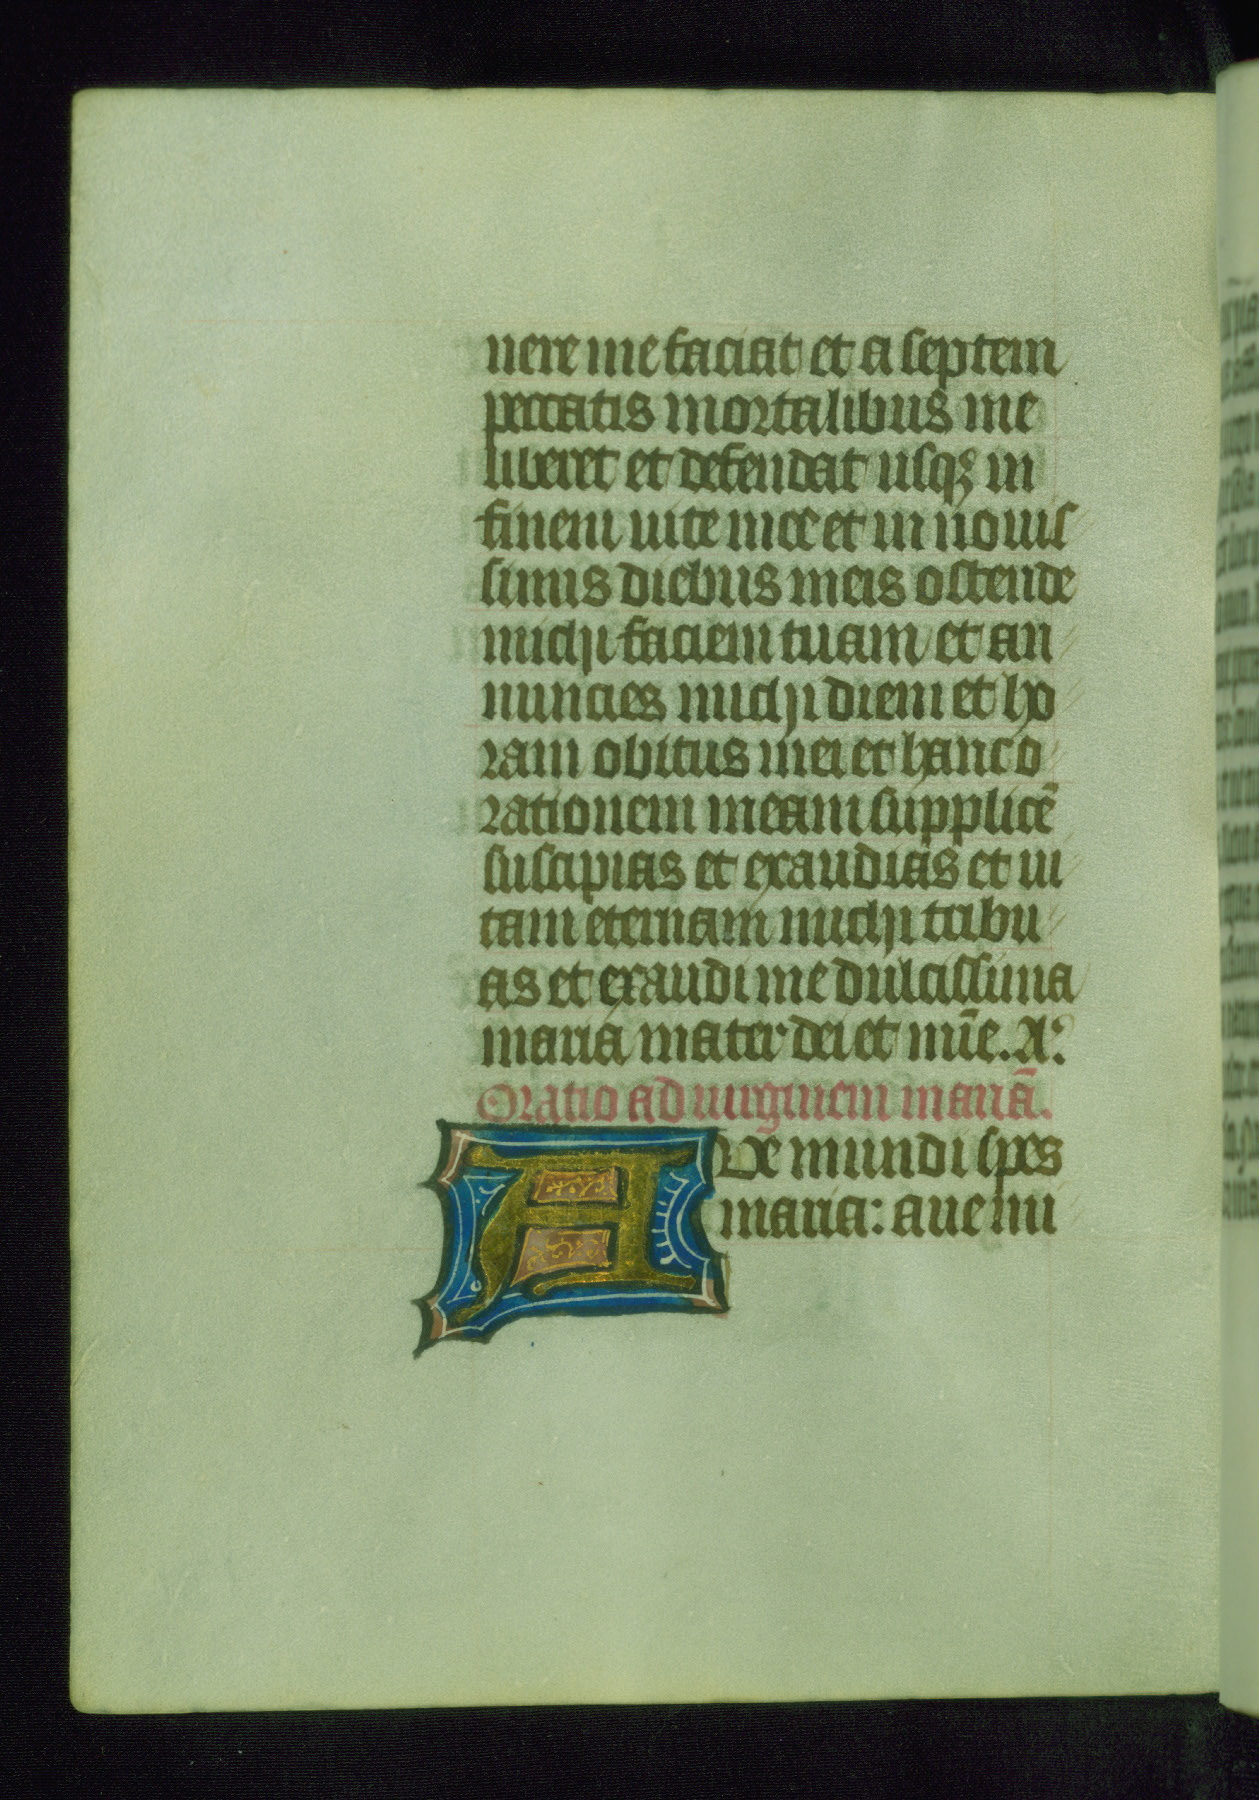 uere me faciat et a septem
peccatis mortalibus me
liberet et defendat usqꝫ in
finem uite mee et in nouis
simis diebus meis ostende
michi faciem tuam et an
nuncies michi diem et ho
ram obitus mei et hanc o
rationem meam supplicē
suscipias et exaudias et ui
tam eternam michi tribu
as et exaudi me dulcissima
maria mater dei et mīe. A:
Oratio ad uirginem mariā.
AUe mundi spes
maria: aue mi